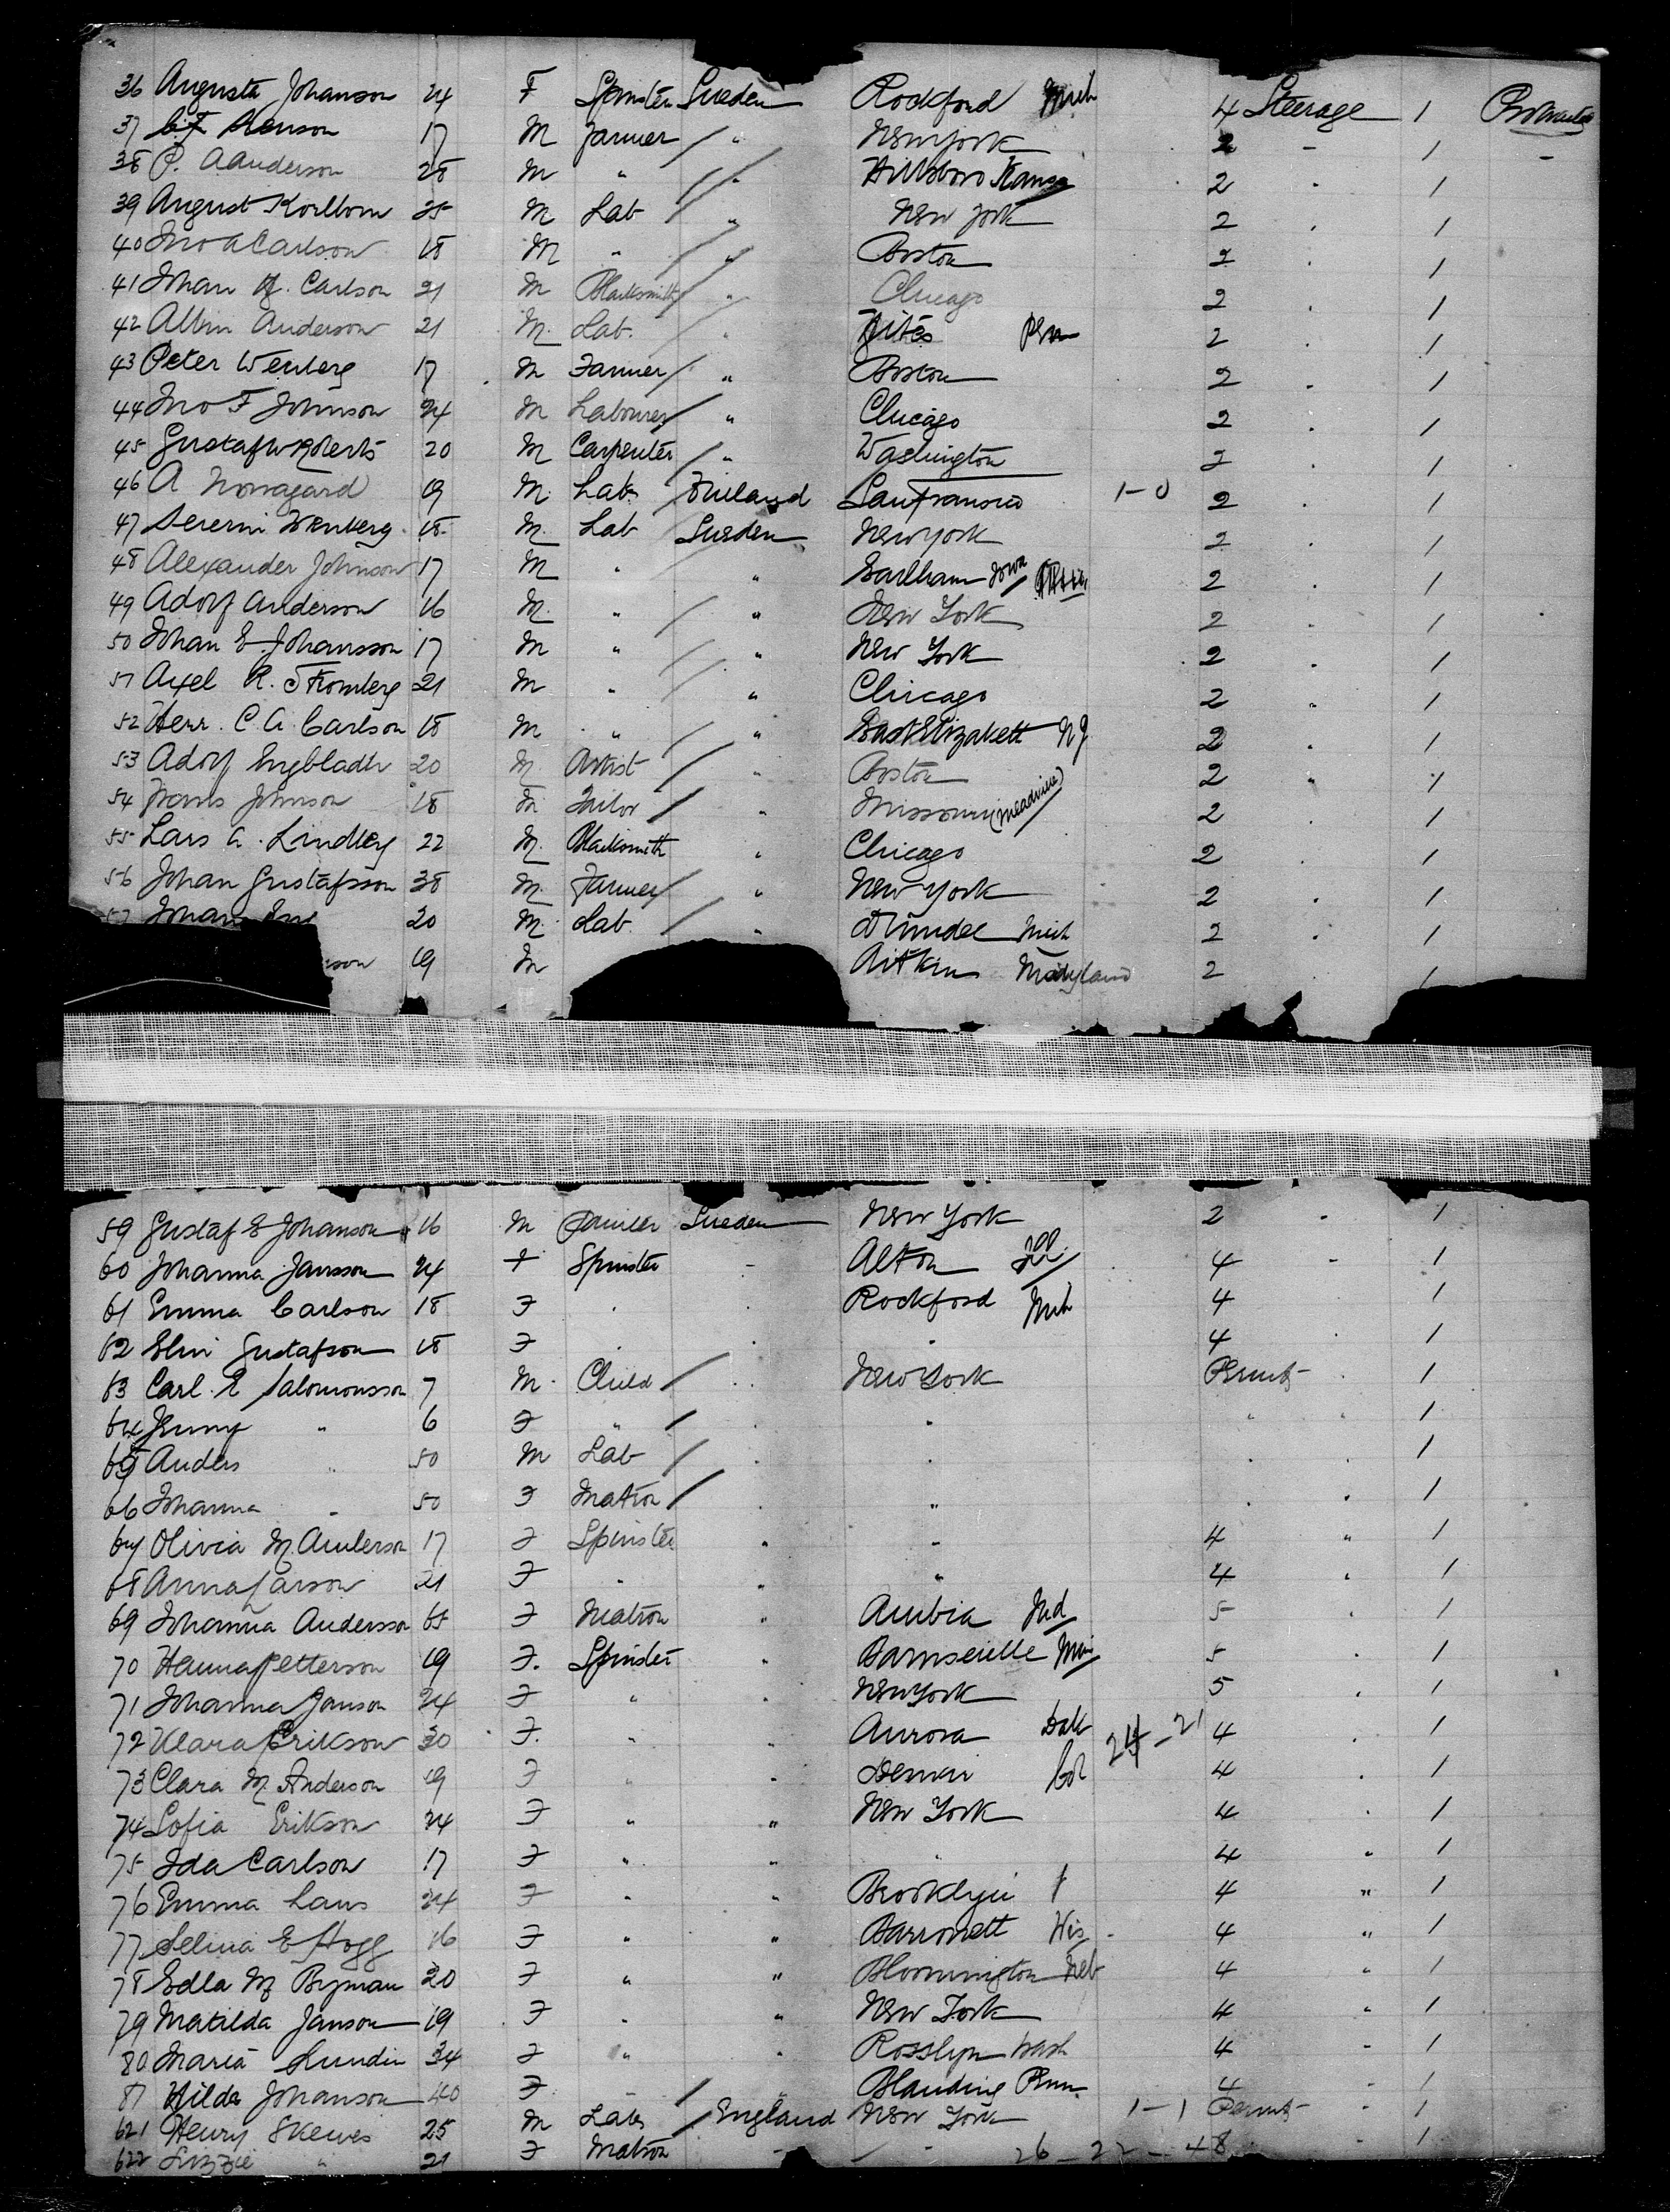 36 Augusta Johanson 24 F Spinster Sweden Rockford Mich 4 Steerage 1
37 17 M Farmer " New York 2 - 1 -
38 P. A Anderson 28 M " " Hillsboro Kansas 2 " 1
39 August 25 M Lab " New York 2 " 1
40 Jno A Carlson 18 M " " Boston 2 " 1
41 Johan A. Carlson 21 M Blacksmith " Chicago 2 " 1
42 Albin Anderson 21 M. Lab. " 2 " 1
43 Peter Wenberg 17 M Farmer " Boston 2 " 1
44 Jno F Johnson 24 M Labourer " Chicago 2 " 1
45 Gustaf 20 M Carpenter " Washington 2 " 1
46 A 19 M. Lab. Finland San Fransisco 1-0 2 " 1
47 Severin Wenberg 18 M. Lab Sweden New York 2 " 1
48 Alexander Johnson 17 M " " Earlham Iowa 2 " 1
49 Adolf Anderson 16 M. " " New York 2 " 1
50 Johan E. Johansson 17 M " " New York 2 " 1
51 Axel R. Stromberg 21 M " " Chicago 2 " 1
52 Herr. C. A. Carlson 18 M " " East Elizabeth NJ 2 " 1
53 Adolf Engbladh 20 M Artist " Boston 2 " 1
54 Frans Johnson 18 M Tailor " Missouri (Meadville) 2 " 1
55 Lars A. Lindley 22 M. Blacksmith " Chicago 2 " 1
56 Johan Gustafsson 38 M. Farmer " New York 2 " 1
57 Johan 20 M Lab " Dundee Mich 2 " 1
19 M Aitkin Maryland 2 1
59 Gustaf E Johanson 16 M Sweden New York 2 " 1
60 Johanna Jansson 24 F Spinster - Alton Ill 4 - 1
61 Emma Carlson 18 F " " Rockford Mich 4 " 1
62 Elin Gustafson 18 F " " 4 " 1
63 Carl. E Salomonsson 7 M. Child " New York 1
64 Jenny " 6 F " " " " " 1
65 Anders " 50 M Lab " " " " 1
66 Johanna " 50 F Matron " " " " 1
67 Olivia M. Anderson 17 F Spinster " " 4 " 1
68 Anna Larson 21 F " " " 4 " 1
69 Johanna Andersson 65 F Matron " Ambia Ind 5 " 1
70 Hanna Petterson 19 F. Spinster " Barnesville Min 5 " 1
71 Johanna Janson 24 F " " New York 5 " 1
72 Klara Erikson 30 F. " " Aurora Dak 24-21 4 " 1
73 Clara M. Anderson 19 F " " Col 4 " 1
74 Sofia Erikson 24 F " " New York 4 " 1
75 Ida Carlson 17 F " " " 4 " 1
76 Emma Laus 24 F " " Brooklyn 4 " 1
77 Selina E Hogg 16 F " " Barronett Wis 4 " 1
78 Edla M Byman 20 F " " Bloomington Neb 4 " 1
79 Matilda Janson 19 F " " New York 4 " 1
80 Maria Lundin 34 F " " Rosslyn Wash 4 - 1
81 Hilda Johanson 40 F " " Blanding Penn. 4 - 1
621 Henry Skewes 25 M Lab. England New York 1-1 - 1
622 Lizzie " 21 F Matron - - 26-22-48 - 1